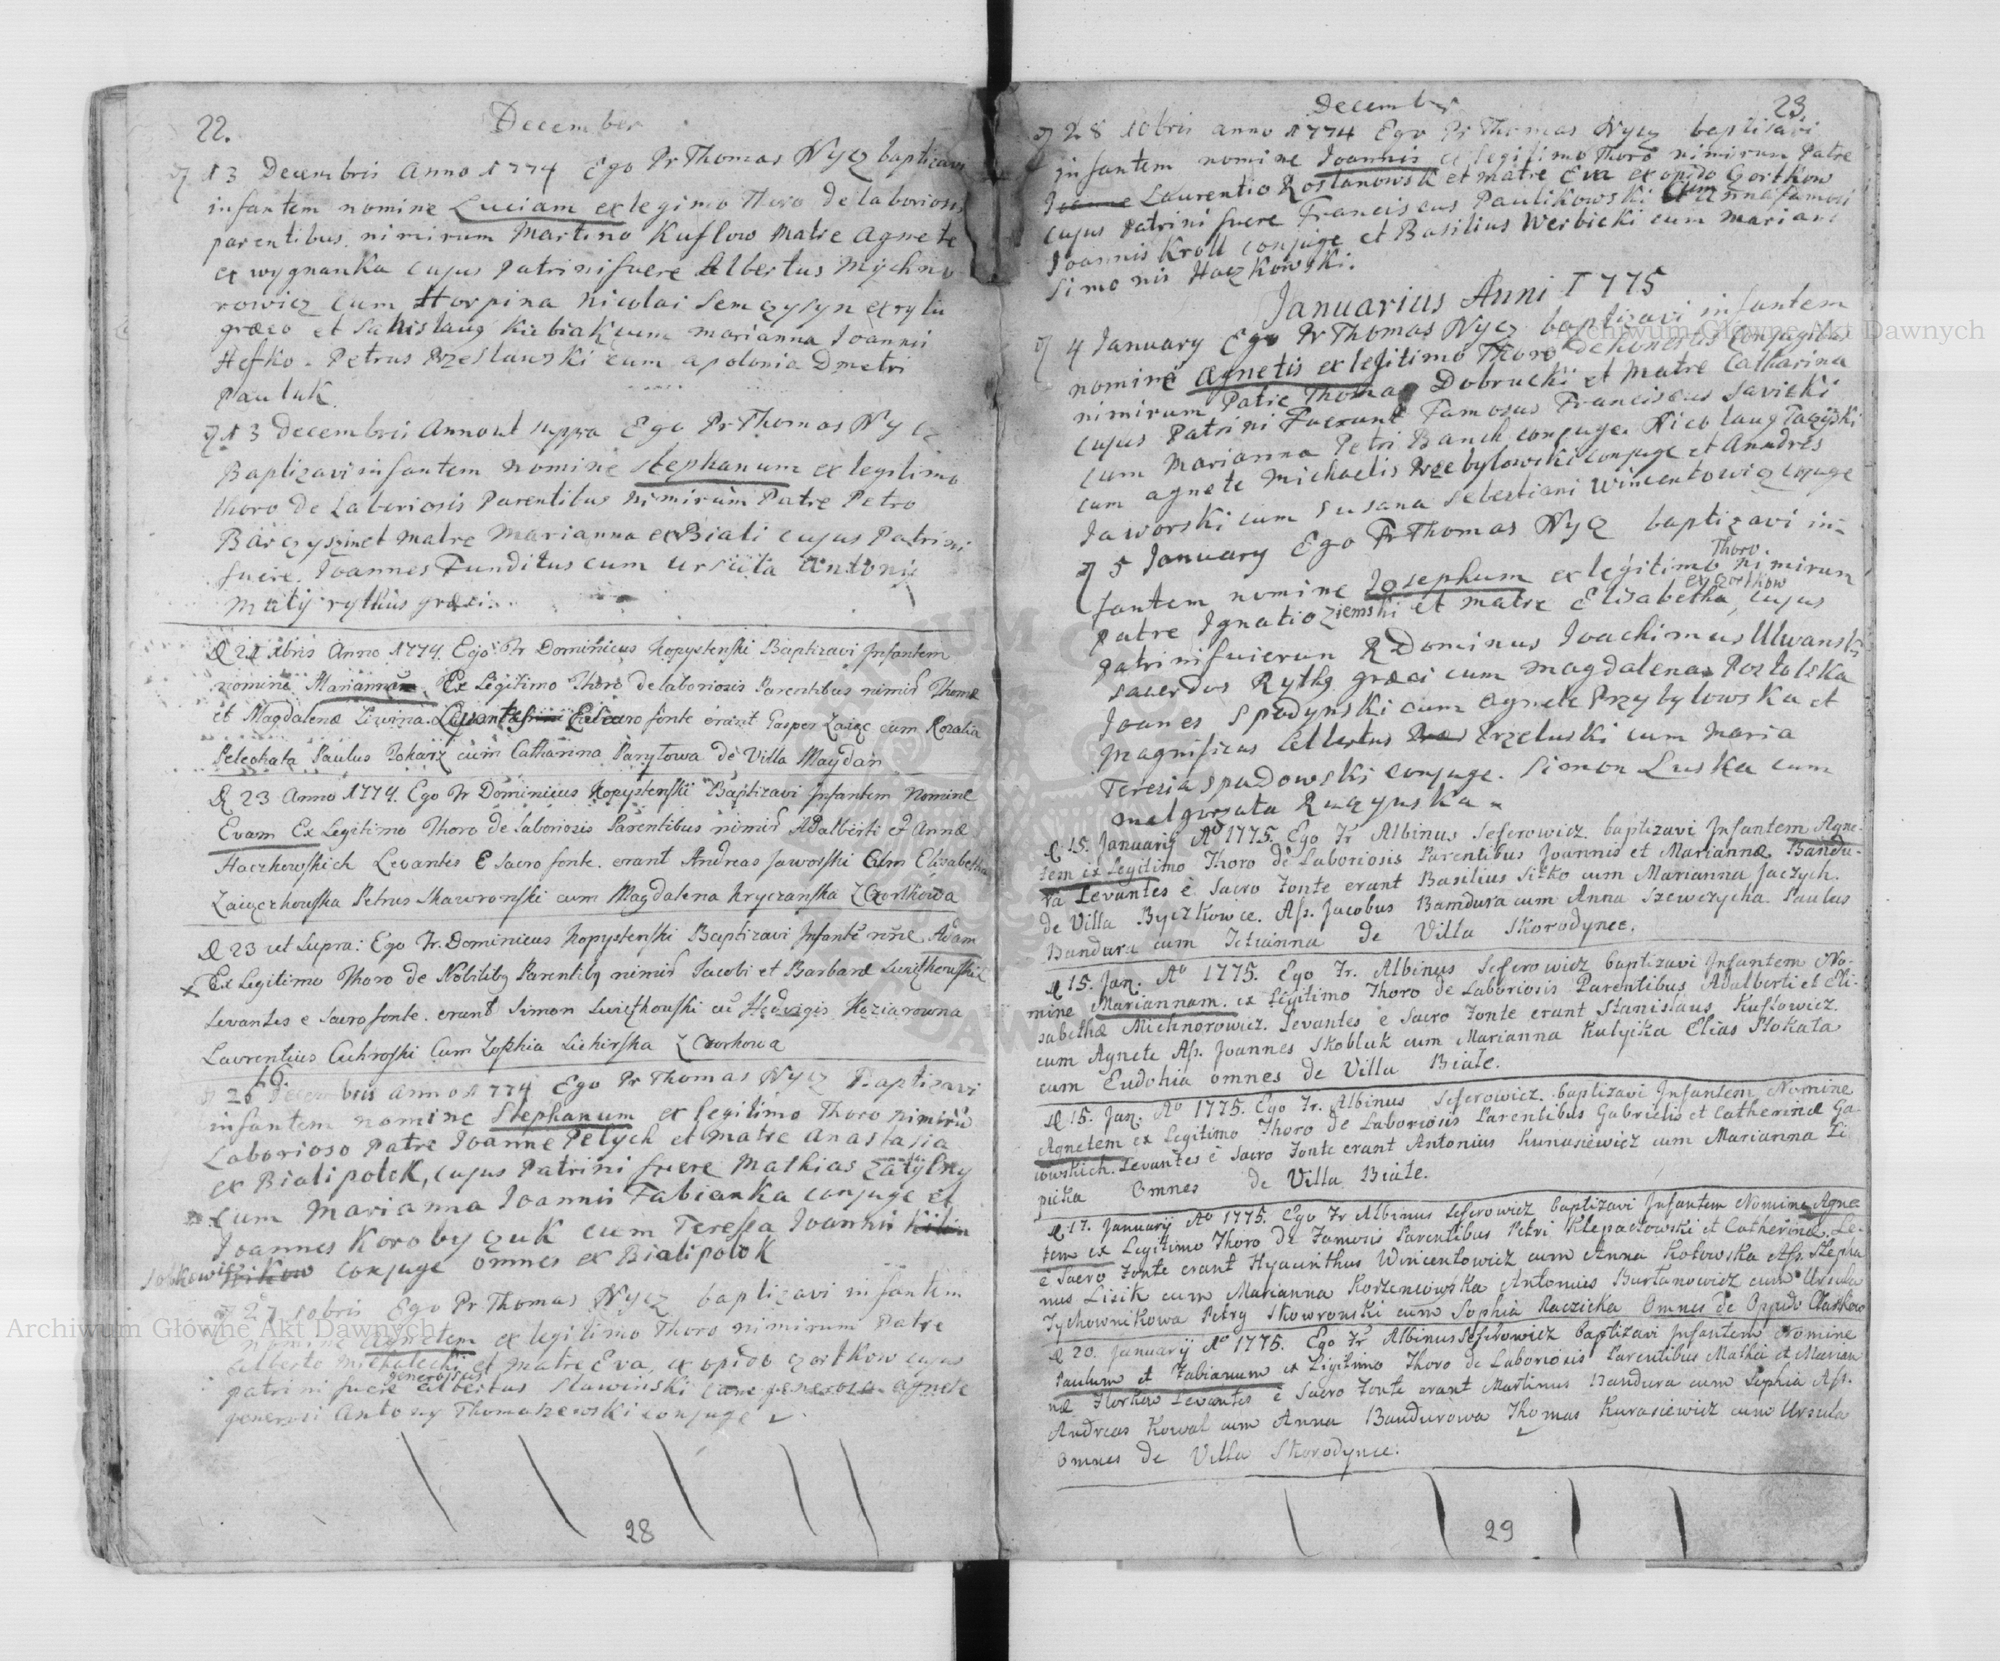 22.
December
13 Decembris Anno 1774 Ego Pr Thomas Nycz baptizavi
infantem nomine Luciam ex legimo Thoro de laboriosis
parentibus nimirum Martino Kuflow Matre Agnete
ex wygnanka cujus Patrini fuere Albertus Mychno
rowicz cum Horpina Nicolai Semczysyn ex rytu
græco et cum Marianna Joannis
Hefko. Petrus Brzeslawski cum apolonia Dmetri
Pauluk
13 Decembris Anno ut supra Ego Pr Thomas Nycz
Baptizavi infantem nomine Stephanum ex legitimo
thoro de Laboriosis Parentibus nimirum Patre Petro
Barczyszin et matre Marianna ex Biali cujus Patrini
fuere. Joannes Funditus cum Urszula Antoni
Matij rythus græci
D 21 Xbris Anno 1774. Ego Fr Dominicus Kopystenski Baptizavi Infantem
nomine Mariannam Ex Legitimo Thoro de laboriosis Parentibus nimir Thomæ
et Magdalenæ Liwina. Levantes E sacro fonte erant Gasper Zaiąc cum Rozalia
Pelechata Paulus Pokarz cum Catharina Parylowa de Villa Maydan
D 23 Anno 1774. Ego Fr Dominicus Kopystenski Baptizavi Infantem Nomine
Evam Ex Legitimo Thoro de laboriosis Parentibus nimir Adalberti et Annæ
Haczkowskich Levantes E Sacro fonte. erant Andreas Jaworski Cum Elisabetha
Zaięczkowska Petrus Skawronski cum Magdalena Kryczanska Z Czortkowa
D 23 ut Supra: Ego Fr. Dominicus Kopystenski Baptizavi Infantē nn̄e Adam
x Ex Legitimo Thoro de Nobilibg Parentibg nimir Jacobi et Barbaræ
Levantes e Sacro fonte. erant Simon cū Hedvigis Koziarowna
Laurentius Cichroski Cum Zophia Lichirska Z Czorkowa
16
26 Decembris anno 1774 Ego Pr Thomas Nycz Baptizavi
infantem nomine Stephanum ex legitimo Thoro nimirū
Laborioso Patre Joanne Pelych et matre Anastasia
ex Bialipotok, cujus Patrini fuere Mathias Zatylny
cum Marianna Joannis Fabianka conjuge et
Joannes Korobyczuk cum Teressa Joannis
Sobkowicz conjuge omnes ex Bialipotok
27 10bris Ego Pr Thomas Nycz baptizavi infantem
nomine Agnetem ex legitimo Thoro nimirum Patre
Alberto Michalecki et matre Eva, ex opido czortkow cujus
patrini fuere generosus albertus Slawinski cum generosa agnete
generosi Antony Thomaszewski conjuge
28
December
23
28 10bris anno 1774 Ego Pr Thomas Nycz baptisavi
infantem nomine Joannis ex legitimo Thoro nimirum Patre
Laurentio Rostanowsk et matre Eva ex opido Czortkow
cujus patrini fuere Franciscus Paulikowski cum anna famosi
Joannis Kroll conjuge et Basilius Werbicki cum Mariana
Simonis Haczkowski.
Januarius Anni 1775
4 January Ego Pr Thomas Nycz baptizavi infantem
nomine Agnetis ex legitimo Thoro de honestis Conjugibus
nimirum Patre Thoma Dobrucki et Matre Catharina
cujus Patrini Fuerunt Famosus Franciscus Savicki
cum Marianna Petri Banch conjuge. Nicolaus
cum agnete Michaelis Przebylowski conjuge et Anndres
Jaworski cum Susana Sebestiani Wincentowicz cojuge
5 January Ego Pr Thomas Nycz baptizavi in-
fantem nomine Josephum ex legitimo Thoro. nimirum
patre Ignatio Ziemski et matre Elisabetha ex czortkow, cujus
patrini fuierun R Dominus Joachimus Ulwanski
sacerdos Rythg græci cum Magdalena Postolska
Joanes Spodynski cum Agnete Przybylowska et
magnificus Albertus Brzeluski cum Maria
Teresia Spadowski conjuge. Simon Luska cum
malgorzata
D 15. Januarij Aº 1775. Ego Fr Albinus Seferowicz baptizavi Infantem Agne-
tem ex Legitimo Thoro de Laboriosis Parentibus Joannis et Mariannæ Bandu-
ra Levantes è Sacro Fonte erant Basilius Sitko cum Marianna Jaczych.
de Villa Byczkowce. Ass. Jacobus Bandura cum Anna Szewczycha. Paulus
Bandura cum Tetianna de Villa Skorodynce.
D 15. Jan. Aº 1775. Ego Fr. Albinus Seferowicz baptizavi Infantem No-
mine Mariannam. ex Legitimo Thoro de Laboriosis Parentibus Adalberti et Eli-
sabethæ Michnorowicz. Levantes è Sacro Fonte erant Stanislaus Kuflowicz.
cum Agnete Ass. Joannes Skobluk cum Marianna Kulycka Elias Slokata
cum Eudohia omnes de Villa Biale.
D 15. Jan. Aº 1775. Ego Fr. Albinus Seferowicz. baptizavi Infantem Nomine
Agnetem ex Legitimo Thoro de Laboriosis Parentibus Gabrielis et Catherinæ Ga-
iowskich. Levantes è Sacro Fonte erant Antonius Kunasiewicz cum Marianna Li
picka Omnes de Villa Biale.
D 17. Januarij Aº 1775. Ego Fr Albinus Seferowicz baptizavi Infantem Nomine Agne
tem ex Legitimo Thoro de Famosis Parentibus Petri Klepaczowski et Catherinæ. Le-
è Sacro Fonte erant Hyacinthus Wincentowicz cum Anna Kotowska Ass. Stepha
nus Lisik cum Marianna Korzeniowska Antonius Burtanowicz cum Ursula
Tychownikowa Petrg Skowronski cum Sophia Raczicka Omnes de Oppido Czartkow
D 20. Januarij Aº 1775. Ego Fr Albinus Seferowicz baptizavi Infantem Nomine
Paulum et Fabianum ex Legitimo Thoro de Laboriosis Parentibus Mathei et Marian
næ Horkow Levantes è Sacro Fonte erant Martinus Bandura cum Sophia Ass.
Andreas Kowal cum Anna Bandurowa Thomas Kurasiewicz cum Ursula
omnes de Villa Skorodynce.
29
Archiwum Główne Akt Dawnych
Archiwum Główne Akt Dawnych